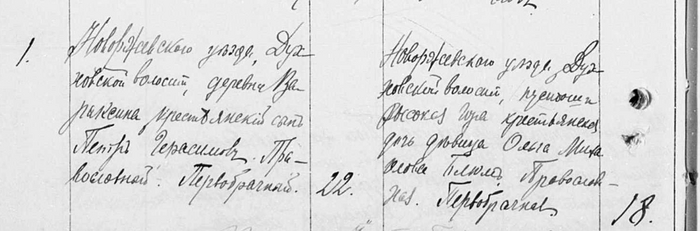 1.
Новоржевскаго уѣзда, Дух-
новской волости, деревни Ва-
крестьянскій сынъ
Петръ Герасимовъ, Пра-
вославный. Первобрачный.
22.
Новоржевскаго уѣзда, Дух-
новской волости,
Высокая Гора крестьянская
дочь дѣвица Ольга Миха
Православ-
ная. Первобрачная
18.